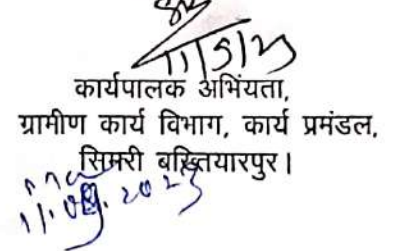 11/5/23
कार्यपालक अभिंयता,
ग्रामीण कार्य विभाग, कार्य प्रमंडल,
सिमरी बख्तियारपुर।